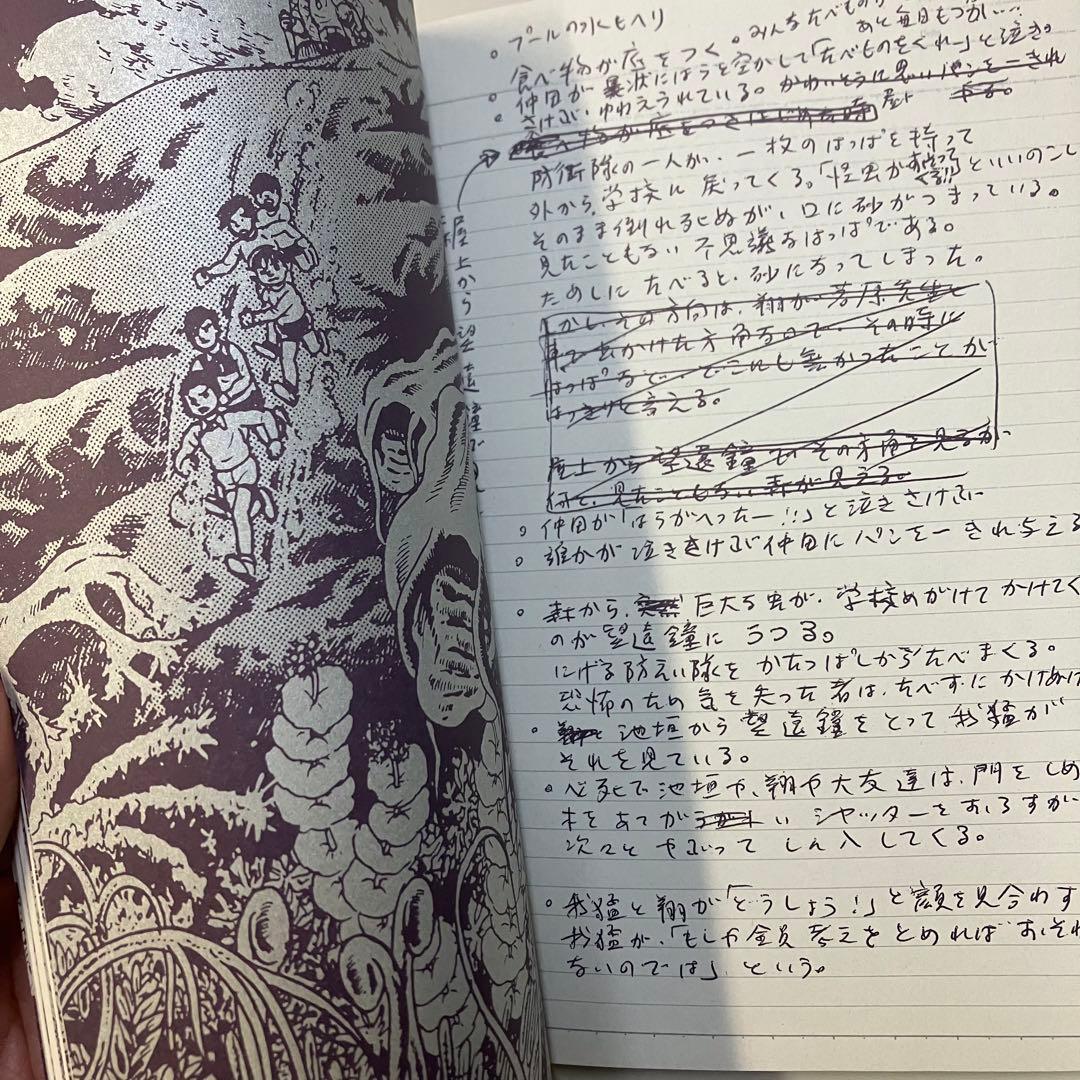 。プールの水もヘリ
。みんなたべもの
あと毎日もつかい…
食べ物が底をつく
。仲田が 暴 状にほうを空かして「たべものをくれー」と泣き。
さけび、ゆわえられている。かわいそうに思いパンを一きれ
やる。
防衛隊の一人が、一枚のはっぱを持って
外から、学校に戻ってくる。「怪虫がおそってくる!」といいのこし
そのまま倒れ死ぬが、口に砂がつまっている。
見たこともない不思議なはっぱである。
ためしにたべると、砂になってしまった。
屋上から望遠鐘
しかし、その方向は、翔が若原先生と
車で出かけた方角なので、その時に
はっぱなど、どこにも無かったことが
はっきりと言える。
屋上から望遠鐘で、その方角を見るが
何と、見たこともない森が見える。
。仲田が「はらがへったー!!」と泣きさけぶ
。誰かが泣きさけぶ仲田にパンを一きれ与える
。森から、突然 巨大な虫が、学校めがけてかけてく
のが望遠鐘にうつる。
にげる防えい隊をかたっぱしからたべまくる。
恐怖のため気を失った者は、たべずにかけぬけ
。池垣から望遠鐘をとって我猛が
それを見ている。
。必死で池垣や、翔や大友達は、門をしめ
木をあてがい シャッターをおろすが
次々とやぶってしん入してくる。
。我猛と翔が「どうしよう!」と顔を見合わす
我猛が、「もしや全員考えをとめればおそわれ
ないのでは」、という。